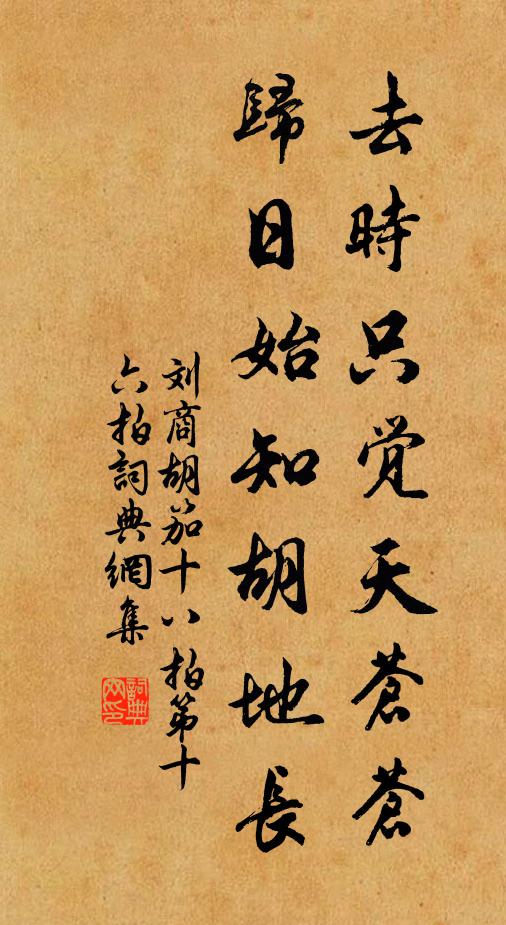 去時只覚天蒼蒼
歸日始知胡地長
刘商胡笳十八拍第十
六拍詞典網集
詞典
网印